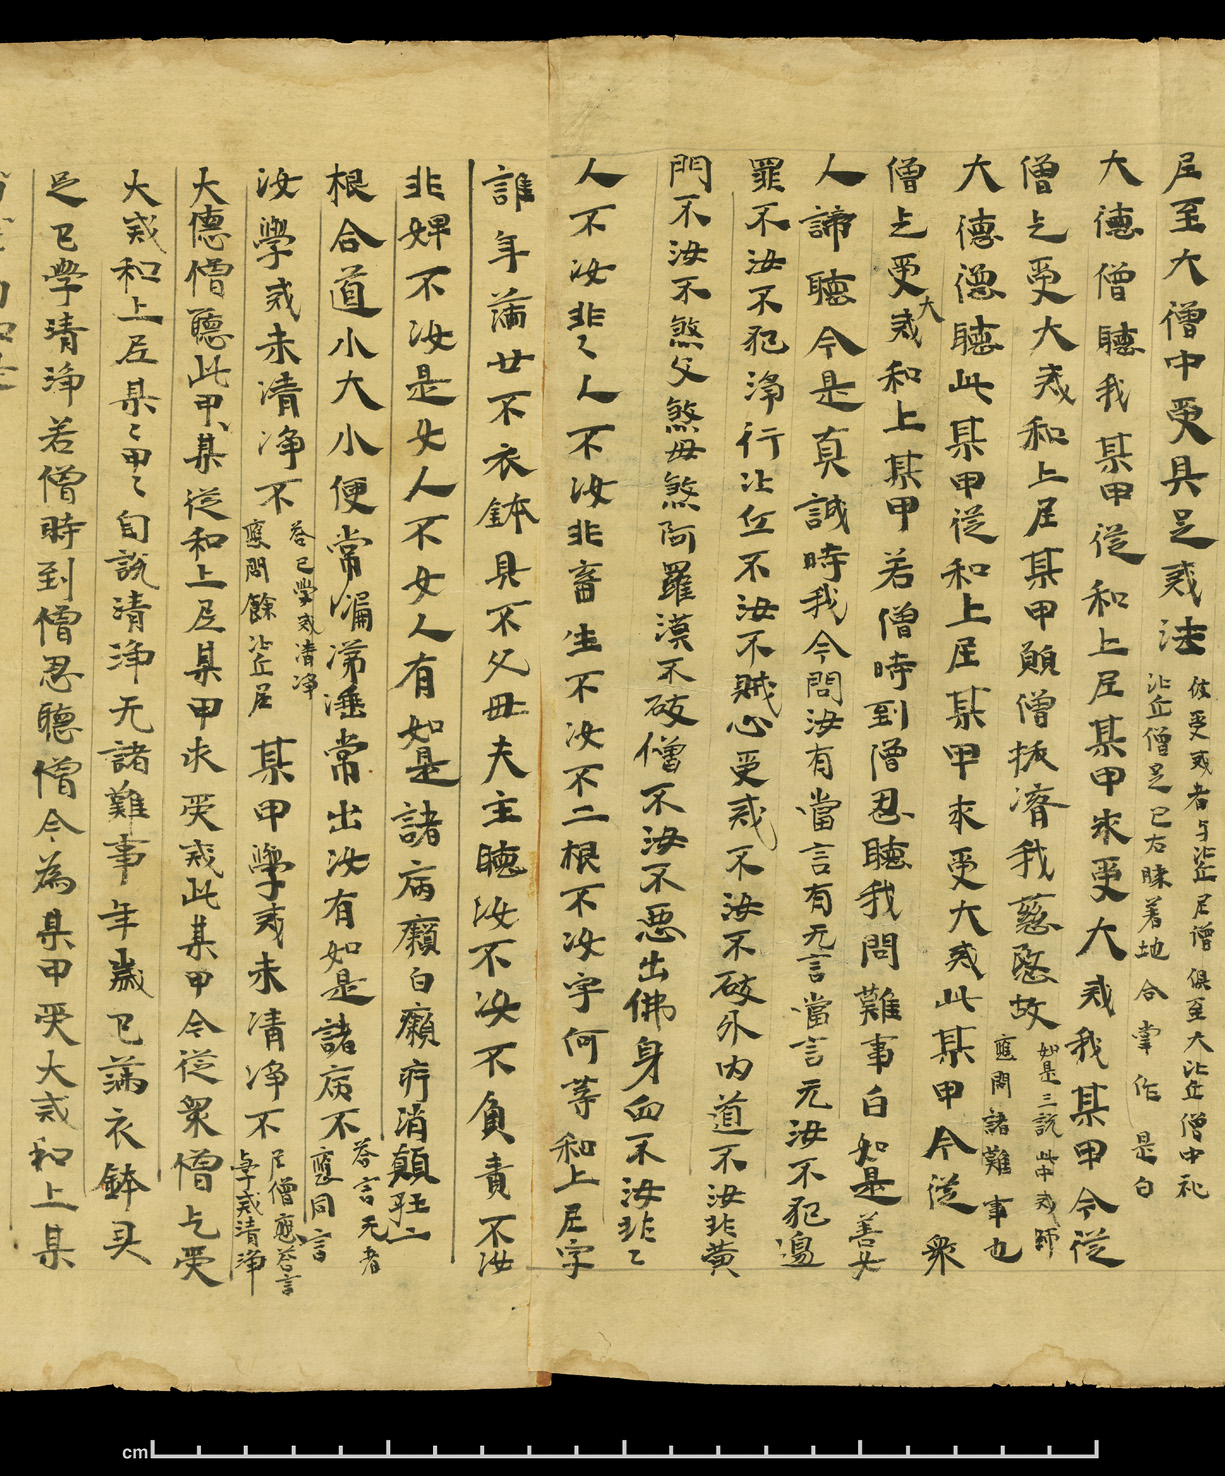 尼至大僧中受具足戒法 彼受戒者与比丘尼僧俱至大比丘僧中礼比丘僧足已右膝着地合掌作是白
大德僧聽我某甲從和上尼某甲求受大戒我某甲今從
僧乞受大戒和上尼某甲願僧拔濟我慈愍故 如是三說此中戒師應問諸難事也
大德僧聽此某甲從和上尼某甲求受大戒此某甲今從眾
僧乞受大戒和上某甲若僧時到僧忍聽我問難事白如是善女
人諦聽今是真誠時我今問汝有當言有无言當言无汝不犯邊
罪不汝不犯淨行比丘不汝不賊心受戒不汝不破外內道不汝非黃
門不汝不煞父煞母煞阿羅漢不破僧不汝不惡出佛身血不汝非〻
人不汝非〻人不汝非畜生不汝不二根不汝字何等和上尼字
誰年滿廿不衣鉢具不父母夫主聽汝不汝不負責不汝
非婢不汝是女人不女人有如是諸病癩白癩疔消顛狂二
根合道小大小便常漏涕唾常出汝有如是諸病不 答言无者應同言
汝學戒未清淨不 答已學戒清淨應問餘比丘尼 某甲學戒未清淨不 尼僧應答言與學戒清淨
大德僧聽此甲某從和上尼某甲求受戒此某甲今從眾僧乞受
大戒和上尼某〻甲〻自說清淨无諸難事年歲已滿衣鉢具
足已學清淨若僧時到僧忍聽僧今為某甲受大戒和上某